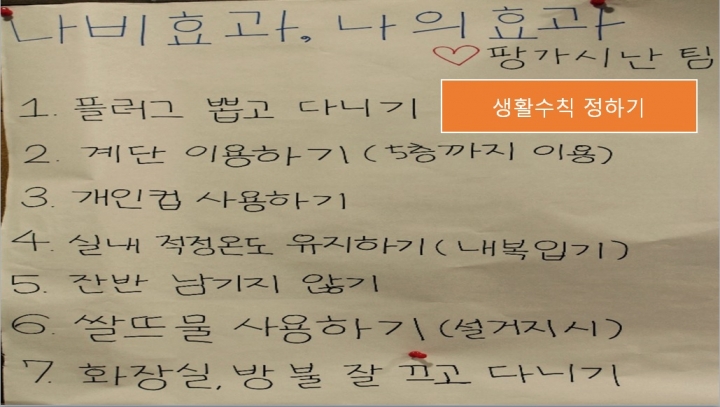 나비효과, 나의효과
♡팡가시난 팀
1. 플러그 뽑고 다니기
생활수칙 정하기
2. 계단 이용하기 (5층까지 이용)
3. 개인컵 사용하기
4. 실내 적정온도 유지하기 (내복입기)
5. 잔반 남기지 않기
6. 쌀뜨물 사용하기 (설거지시)
7. 화장실, 방 불 잘 끄고 다니기